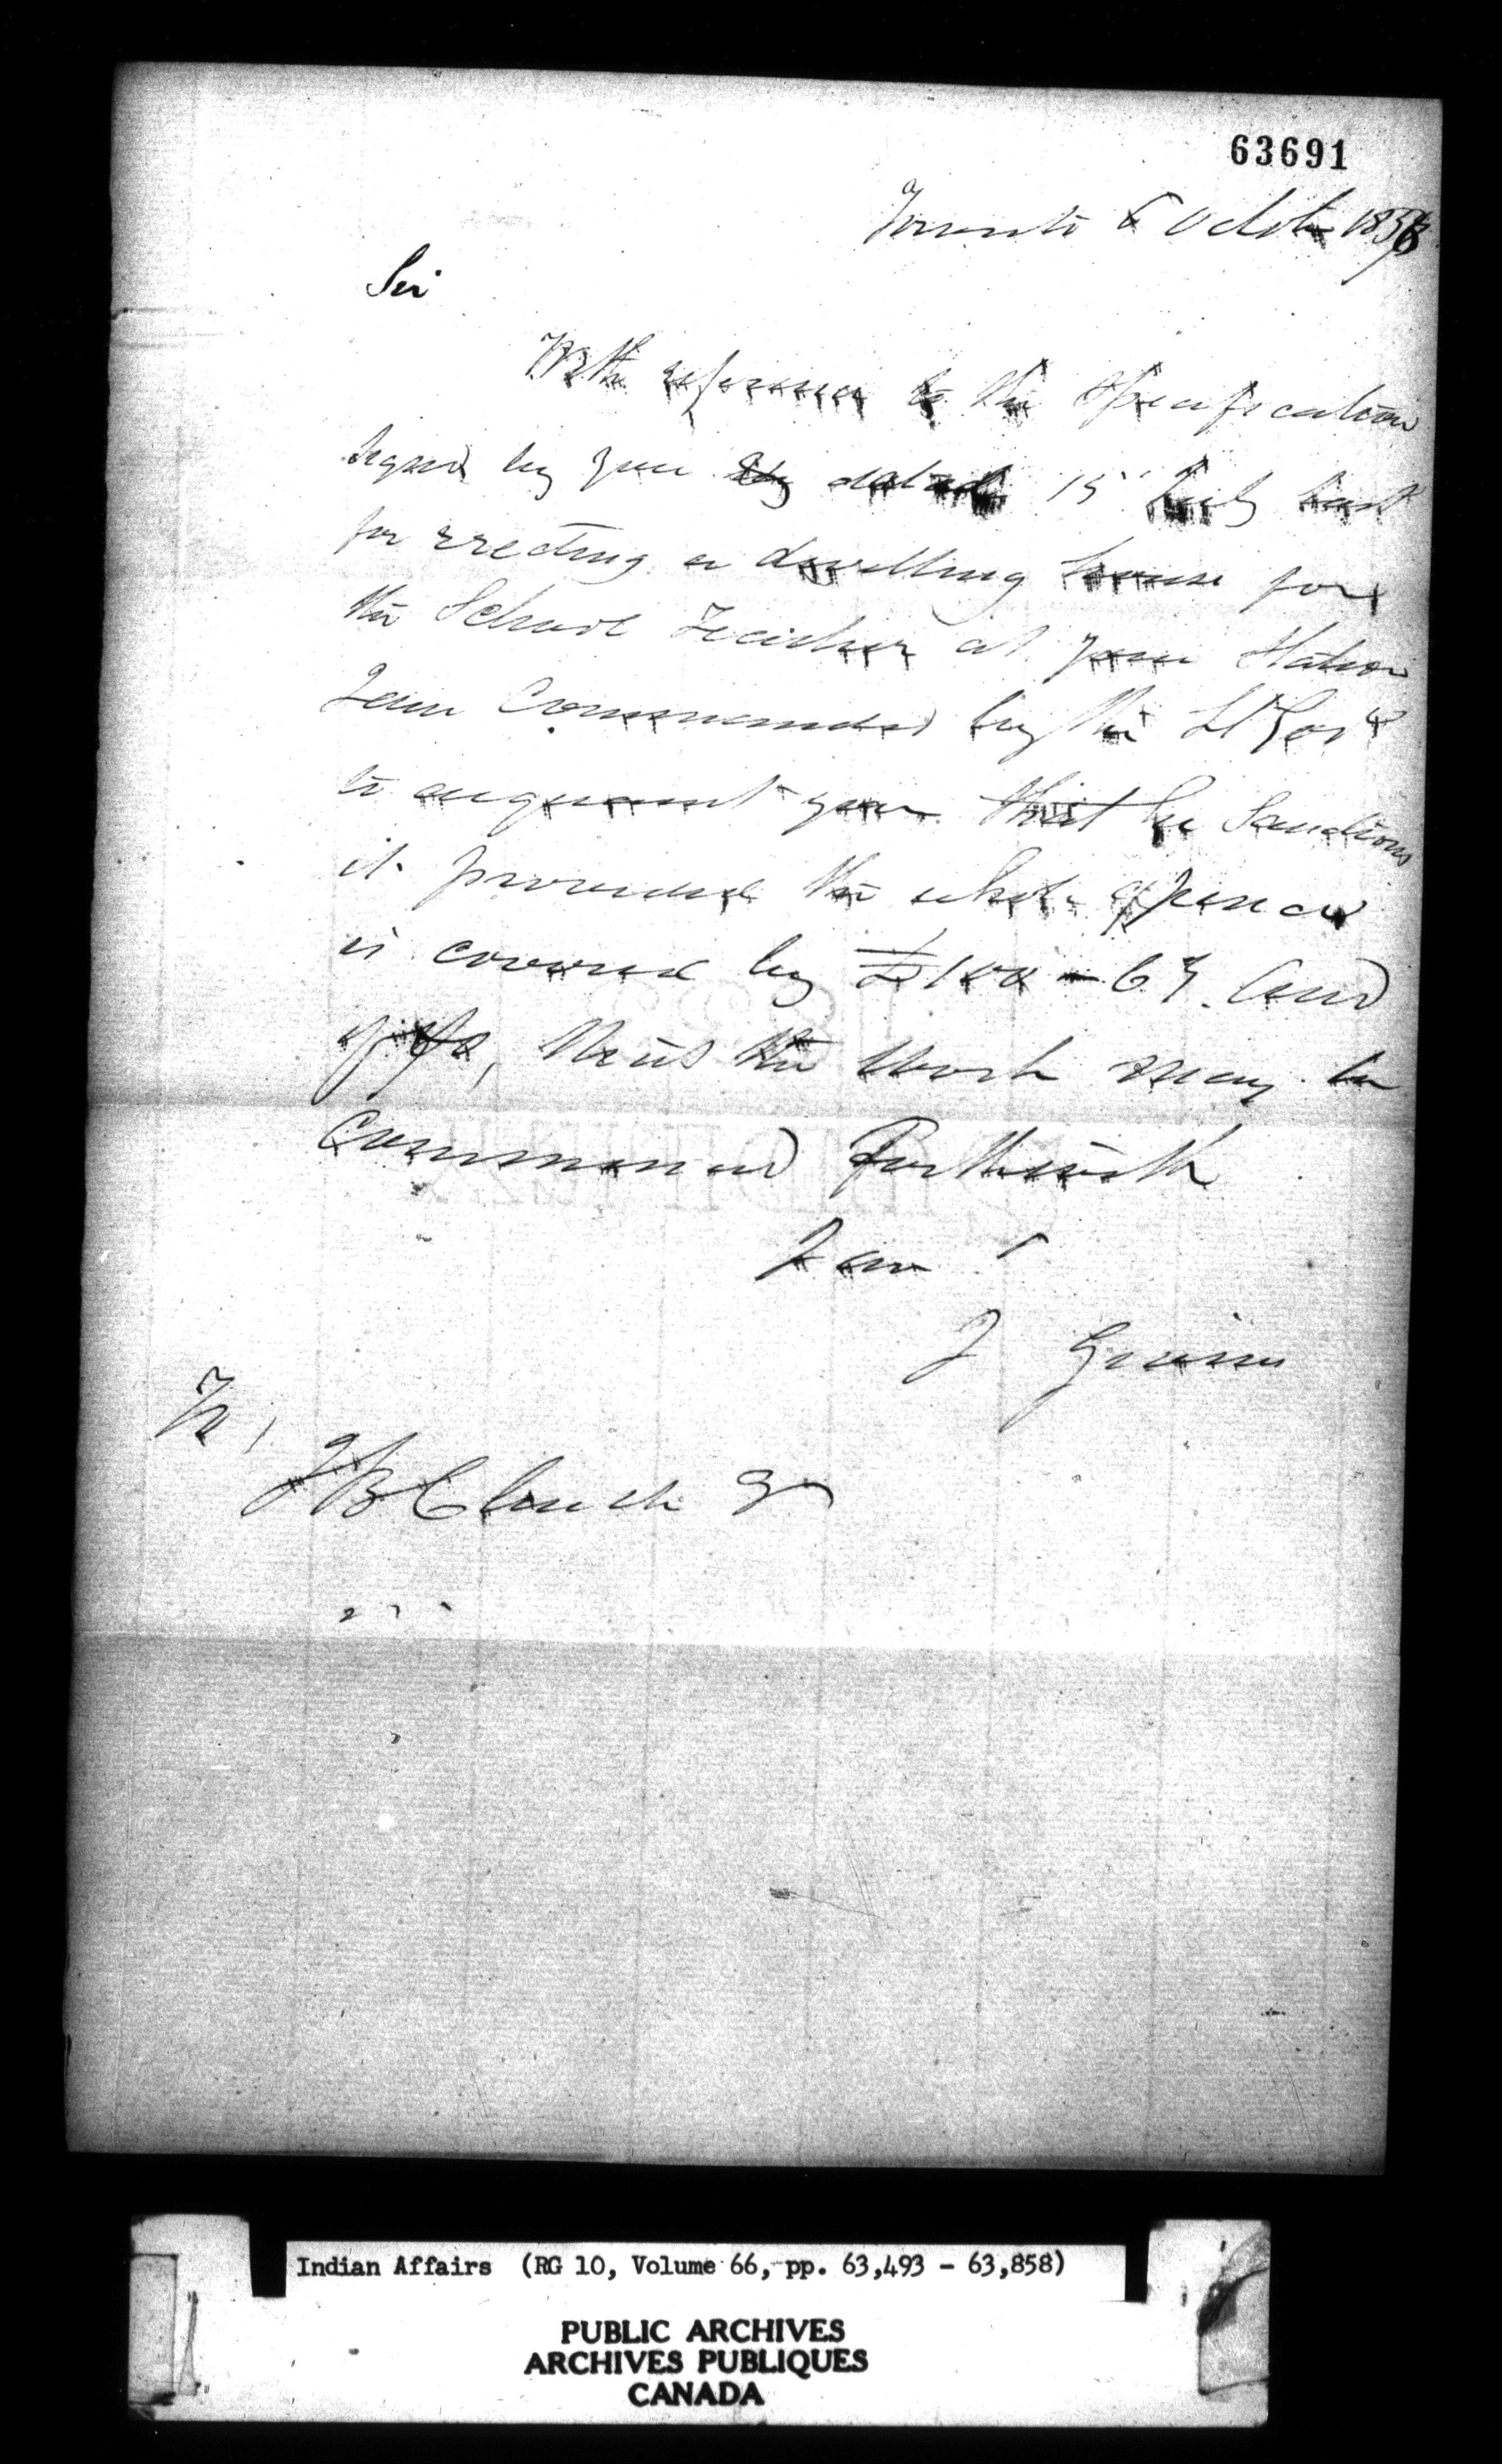 63691
Toronto 6 Octob 183
Sir
With reference to the Specification
signed by you dated 15 July last
for erecting a dwelling house for
the School Teacher at your Station
I am Commanded by the Lt Govr
to acquaint you that he Sanctions
it provided the whole expence
is covered by £100 - 67. and
if so, the work may be
Commenced Forthwith
I am
J Givins
To,
J B Clench
Indian Affairs (RG 10, Volume 66, pp. 63,493 - 63,858)
PUBLIC ARCHIVES
ARCHIVES PUBLIQUES
CANADA